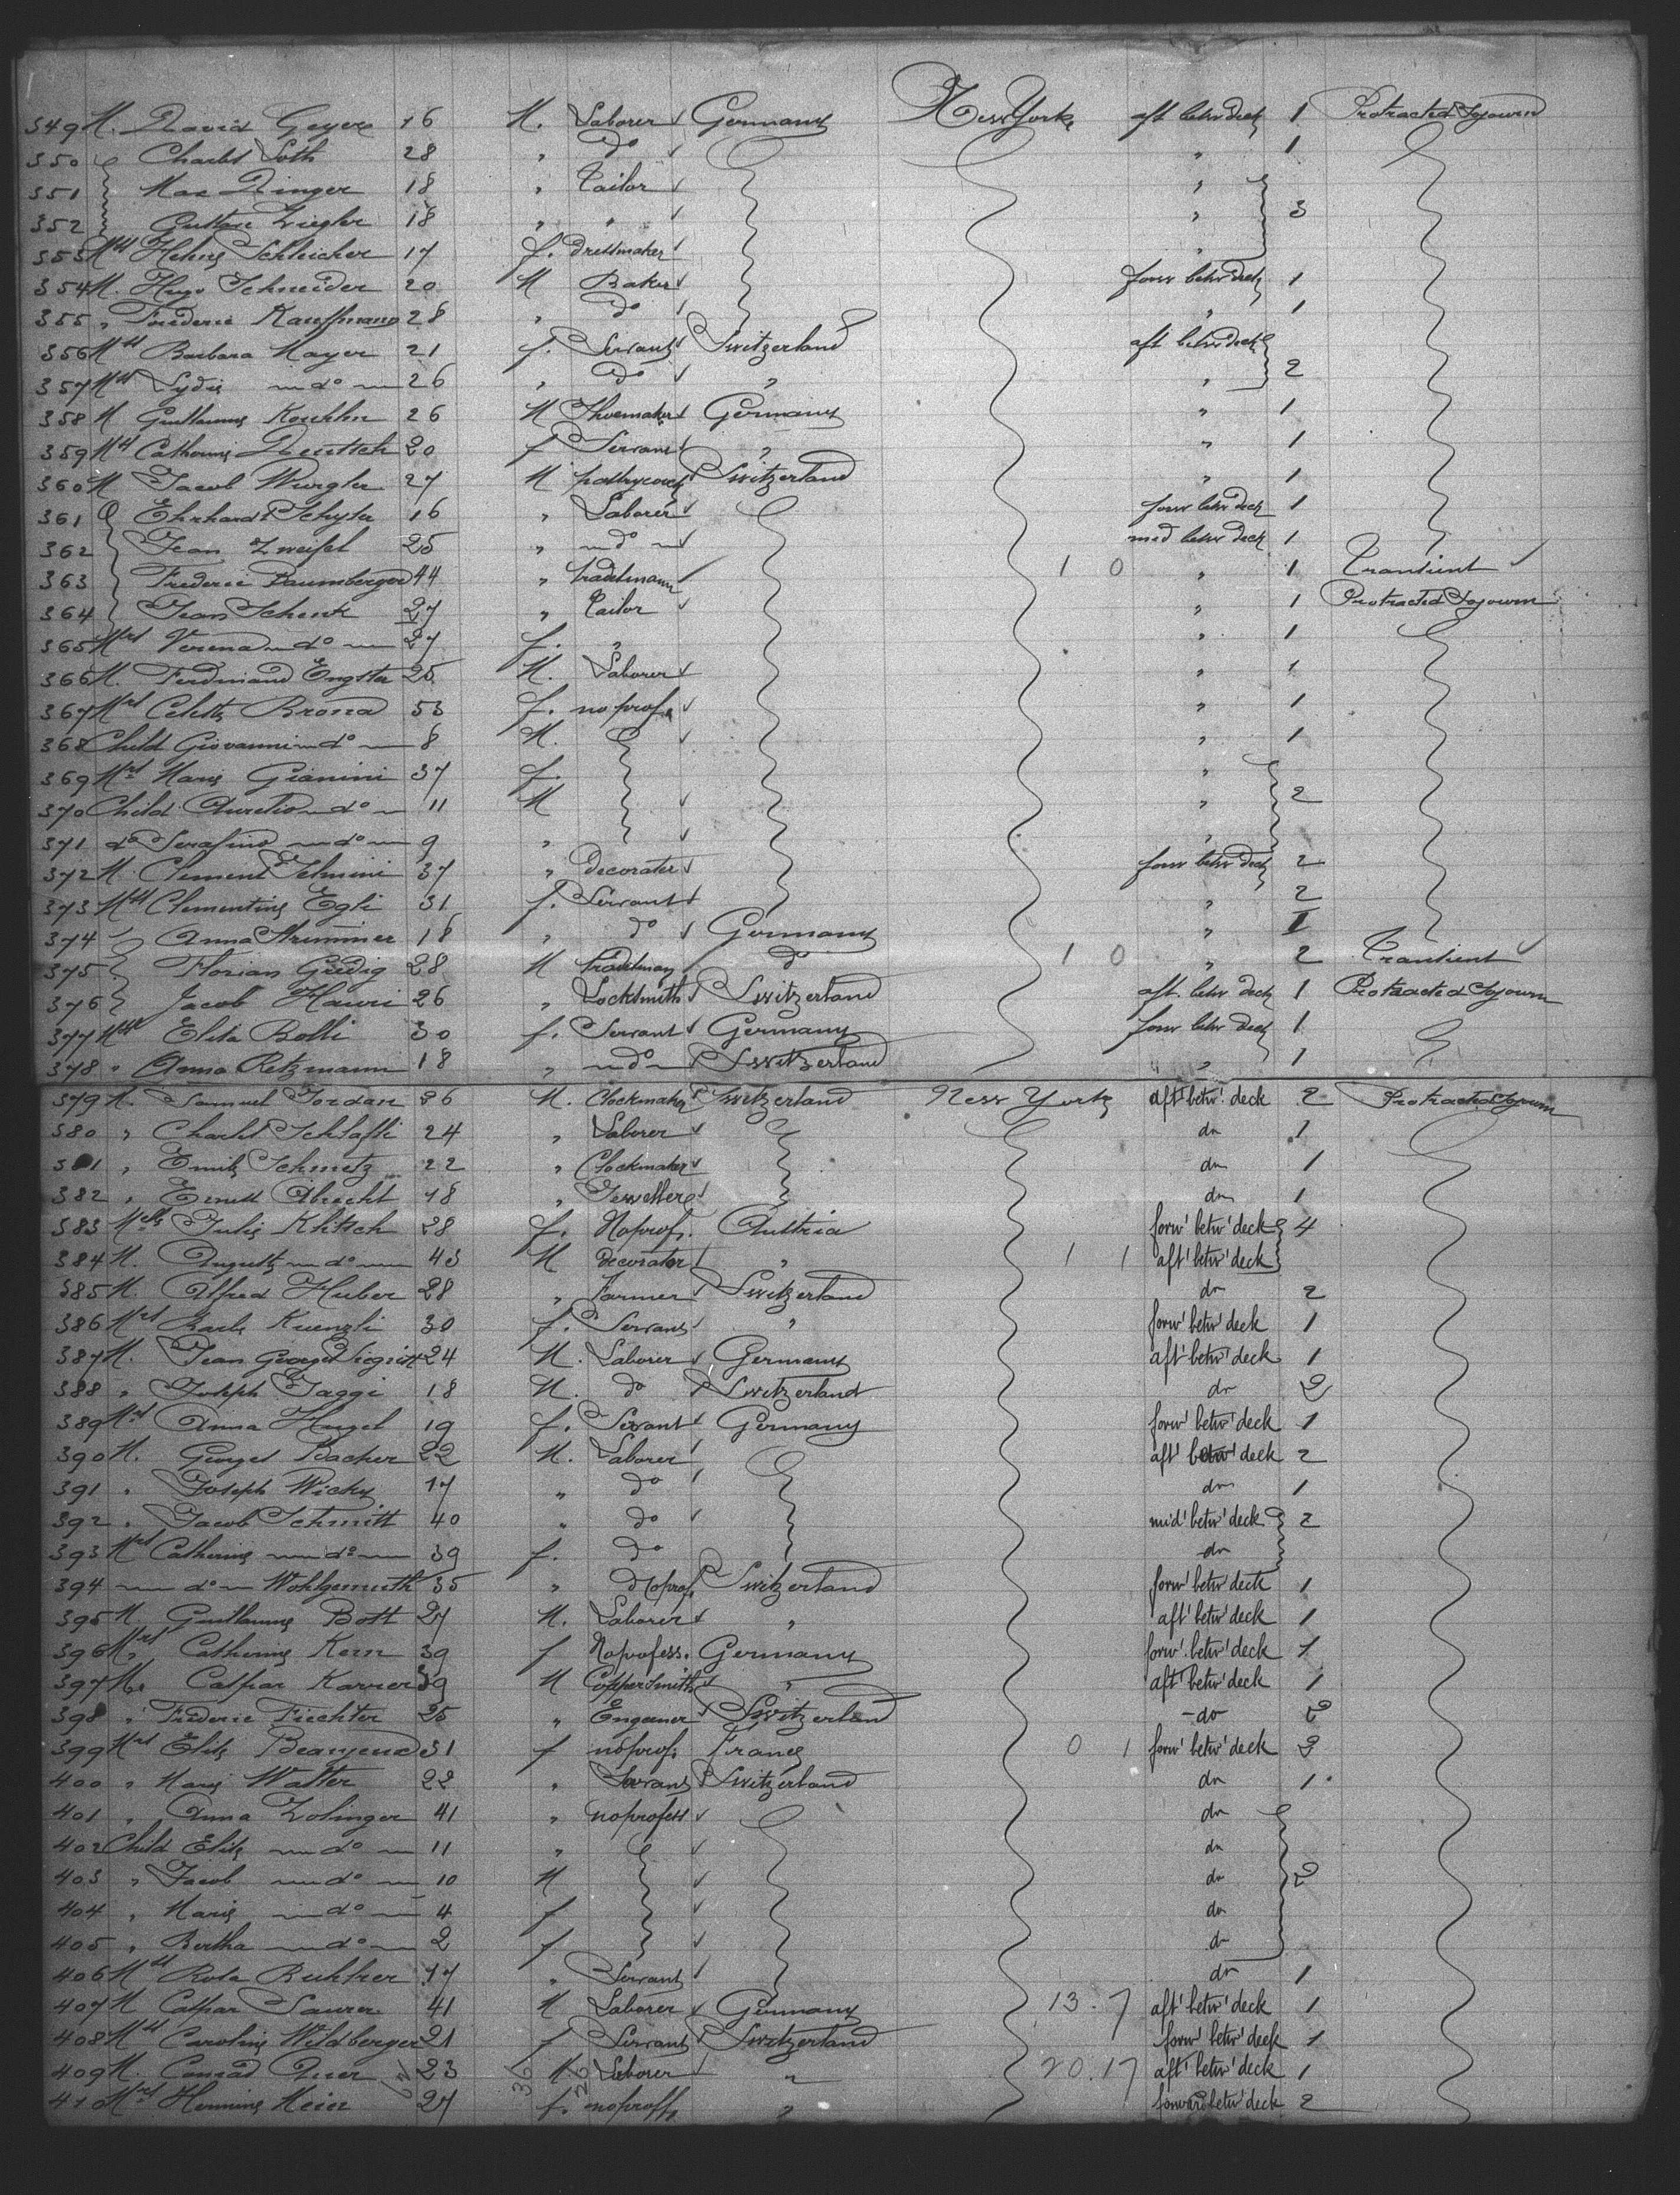 349 M. David Geyer 16 M. Laborer Germany New York aft betw deck 1 Protracted Sojourn
350 Charles Loth 28 " do " 1
351 Max Dinger 18 " Tailor "
352 Gustave Ziegler 18 " " " 3
353 Mss Helene Schleicher 17 f. dressmaker "
354 M. Hugo Schneider 20 M Baker forw betw deck 1
355 " Frederic Kauffmann 28 " do " 1
356 Mss Barbara Mayer 21 f. Servant Switzerland aft betw deck
357 Mss Lydie do 26 " do " " 2
358 M Guillaume Koechlin 26 M Shoemaker Germany " 1
359 Mss Catherine Deutsch 20 f Servant " " 1
360 M Jacob Wurgler 27 M pastrycook Switzerland " 1
361 Ehrhardt Schyler 16 " Laborer forw betw deck 1
362 Jean Zweifel 25 " do med betw deck 1
363 Frederic Baumberger 44 " tradesmann 1 0 " 1 Transient
364 Jean Schenk 27 " Tailor " 1 Protracted Sojourn
365 Mrs Verena do 27 f. " " 1
366 M. Ferdinand Engster 25 M. Laborer " 1
367 Mrs Celeste Brona 53 f. no prof. " 1
368 Child Giovanni do 8 M. " 1
369 Mrs Marie Gianini 37 f. "
370 Child Aurelio do 11 M " 2
371 do Serafino do 9 " "
372 M. Clement Selmini 37 " Decorater forw betw deck 2
373 Mss Clementine Egli 31 f. Servant " 2
374 " Anna Strimmer 18 " do Germany " 1
375 Florian Giedig 28 M tradesman do 1 0 " 2 Transient
376 Jacob Hauri 26 " Locksmith Switzerland aft. betw deck 1 Protracted Sojourn
377 Mss Elisa Bolli 30 f. Servant Germany forw betw deck 1
378 " Anna Retzmann 18 " do Switzerland " 1
379 M. Samuel Jordan 36 M. Clockmaker Switzerland New York aft' betw' deck 2 Protracted Sojourn
380 " Charles Schlafli 24 " Laborer do 1
381 " Emile Schmetz 22 " Clockmaker do 1
382 " Ernest Obrecht 18 " Jewellere do 1
383 Melle Julie Klitsch 28 f. Noprof. Austria forw' betw' deck 4
384 M. Auguste do 43 M Decorator " 1 1 aft' betw' deck
385 M. Alfred Huber 28 " Farmer Switzerland do 2
386 Mrs Karle Kuenzli 30 f. Servant " forw' betw' deck 1
387 M. Jean Georges Siegrist 24 M. Laborer Germany aft' betw' deck 1
388 " Joseph Jaggi 18 M. do Switzerland do 2
389 Mss Anna Hugel 19 f. Servant Germany forw' betw' deck 1
390 M. Georges Bacher 22 M. Laborer aft' betw' deck 2
391 " Joseph Wicky 17 " do do 1
392 " Jacob Schmitt 40 " do mid' betw' deck 2
393 Mrs Catherine do 39 f. do do
394 do Wohlgemuth 35 " Noprof. Switzerland forw' betw' deck 1
395 M. Guillaume Bott 27 M. Laborer " aft' betw' deck 1
396 Mrs Catherine Kern 39 f Noprofess. Germany forw' betw' deck 1
397 M. Caspar Karrer 39 M Coppersmith " aft' betw' deck 1
398 " Frederic Fiechter 25 " Engeener Switzerland do 2
399 Mrs Elise Beaujeux 31 f noprof. France 0 1 forw' betw' deck 2
400 " Marie Walter 22 " Servant Switzerland do 1
401 " Anna Zolinger 41 " noprofess do
402 Child Elise do 11 " do
403 " Jacob do 10 M do 2
404 " Marie do 4 f do
405 " Bertha do 2 f do
406 Mss Rosa Buhlrer 17 " Servant do 1
407 M Caspar Saurer 41 M Laborer Germany 13. 7 aft' betw' deck 1
408 Mss Caroline Wildberger 21 f Servant Switzerland forw' betw' deck 1
409 M. Conrad Auer 23 M Laborer " 20. 17 aft' betw' deck 1
410 Mrs Hermine Meier 27 f. noproff. " forward betw' deck 2